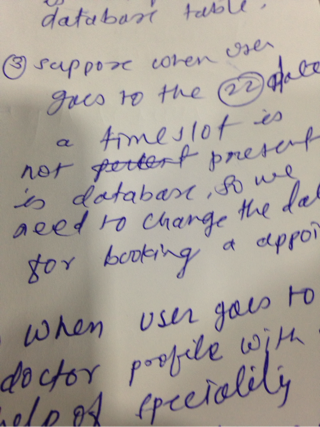 database table.
③ suppose when user
goes to the 22 date
a timeslot is
not present
is database, so we
need to change the
for booking a
when user goes to
doctor profile with
help of speciality